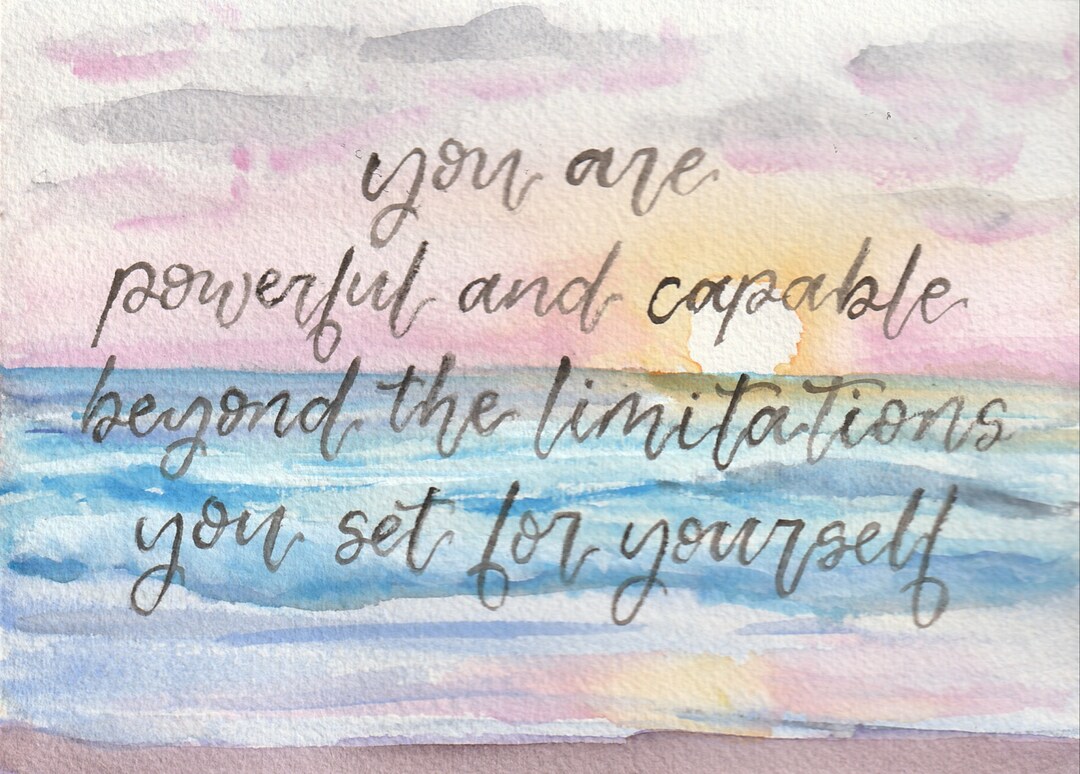 you are
powerful and capable
beyond the limitations
you set for yourself